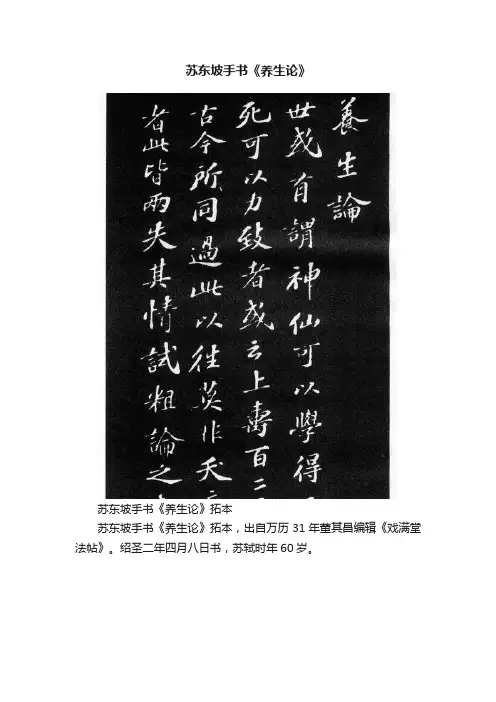 苏东坡手书《养生论》
養生論
世或有謂神仙可以學得
死可以力致者或云上壽百二
古今所同過此以往莫非夭
者此皆兩失其情試粗論之
苏东坡手书《养生论》拓本
苏东坡手书《养生论》拓本，出自万历 31 年董其昌编辑《戏满堂
法帖》。绍圣二年四月八日书，苏轼时年 60 岁。